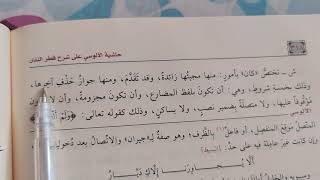 حاشية الآلوسي على شرح قطر الندى
ش - تختصُّ «كان» بأمورٍ: منها مجيئُها زائدةً، وقد تقدَّمَ، ومنها جوازُ حَذْفِ آخِرِها،
وذلك بخمسةِ شروطٍ، وهي: أن تكونَ بلفظِ المضارعِ، وأن تكونَ مجزومةً، وأن لا تكونَ
موقوفًا عليها، ولا متصلةً بضميرِ نصبٍ، ولا بساكنٍ، وذلك كقوله تعالى: ﴿وَلَمْ
الآلوسي
المتصلُ موقعَ المنفصلِ، وفاعلُ بالظرف، وهو صفةٌ لـ«جيران» والاتصالُ بعدَ دُخولِ
وإن كانت غيرَ عاملةٍ فيه على حدِّ:
إلَّاكَ دَيَّارُ